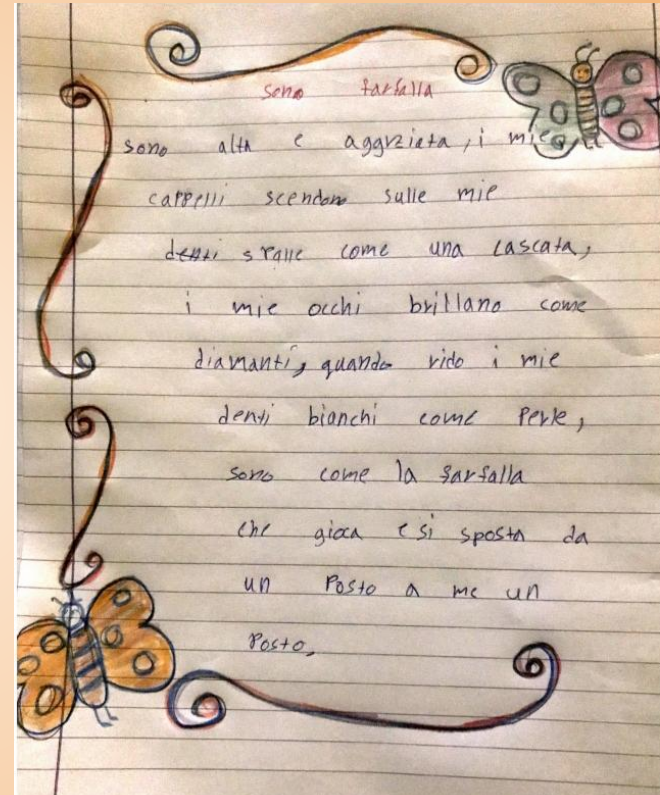 sono farfalla
sono alta e aggrziata, i miei
cappelli scendono sulle mie
spalle come una cascata,
i mie occhi brillano come
diamanti, quando rido i mie
denti bianchi come Perle,
sono come la farfalla
che gioca e si sposta da
un Posto a me un
Posto,